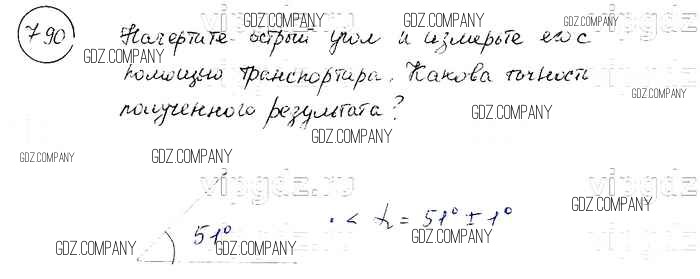 790 Начертите острый угол и измерьте его с
помощью транспортира. Какова точность
полученного результата?
51°
∠ A = 51° ± 1°
vipgdz.ru
vipgdz.ru
vipgdz.ru
vipgdz.ru
GDZ.COMPANY
GDZ.COMPANY
GDZ.COMPANY
GDZ.COMPANY
GDZ.COMPANY
GDZ.COMPANY
GDZ.COMPANY
GDZ.COMPANY
GDZ.COMPANY
GDZ.COMPANY
GDZ.COMPANY
GDZ.COMPANY
GDZ.COMPANY